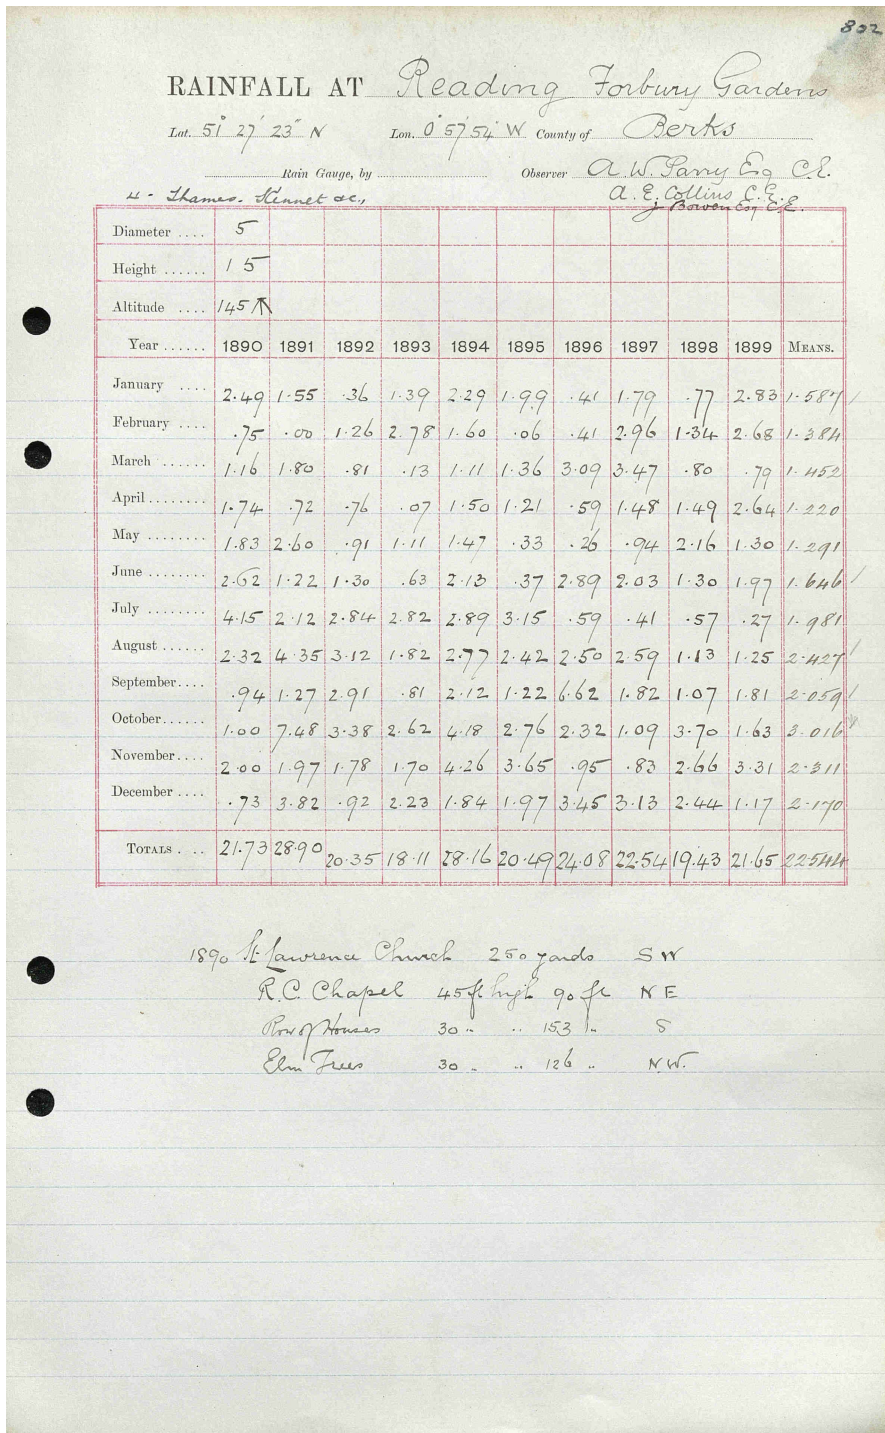 802
RAINFALL AT Reading Forbury Gardens
Lat. 51° 27' 23" N Lon. 0° 57' 54" W County of Berks
Rain Gauge, by Observer A. W. Parry Esq C.E.
4 - Thames. Kennet &c., A. E. Collins C.E.
J Bowen Esq C.E.
Diameter .... 5
Height ...... 15
Altitude .... 145
Year ...... 1890 1891 1892 1893 1894 1895 1896 1897 1898 1899 MEANS.
January .... 2.49 1.55 .36 1.39 2.29 1.99 .41 1.79 .77 2.83 1.587
February .... .75 .00 1.26 2.78 1.60 .06 .41 2.96 1.34 2.68 1.384
March ...... 1.16 1.80 .81 .13 1.11 1.36 3.09 3.47 .80 .79 1.452
April ........ 1.74 .72 .76 .07 1.50 1.21 .59 1.48 1.49 2.64 1.220
May ........ 1.83 2.60 .91 1.11 1.47 .33 .26 .94 2.16 1.30 1.291
June ........ 2.62 1.22 1.30 .63 2.13 .37 2.89 2.03 1.30 1.97 1.646
July ........ 4.15 2.12 2.84 2.82 2.89 3.15 .59 .41 .57 .27 1.981
August ...... 2.32 4.35 3.12 1.82 2.77 2.42 2.50 2.59 1.13 1.25 2.427
September.... .94 1.27 2.91 .81 2.12 1.22 6.62 1.82 1.07 1.81 2.059
October...... 1.00 7.48 3.38 2.62 4.18 2.76 2.32 1.09 3.70 1.63 3.016
November.... 2.00 1.97 1.78 1.70 4.26 3.65 .95 .83 2.66 3.31 2.311
December .... .73 3.82 .92 2.23 1.84 1.97 3.45 3.13 2.44 1.17 2.170
TOTALS . .. 21.73 28.90 20.35 18.11 28.16 20.49 24.08 22.54 19.43 21.65 22.544
1890 St Lawrence Church 250 yards SW
R.C. Chapel 45 ft high 90 ft NE
Row of Houses 30 " " 153 " S
Elm Trees 30 " " 126 " N.W.